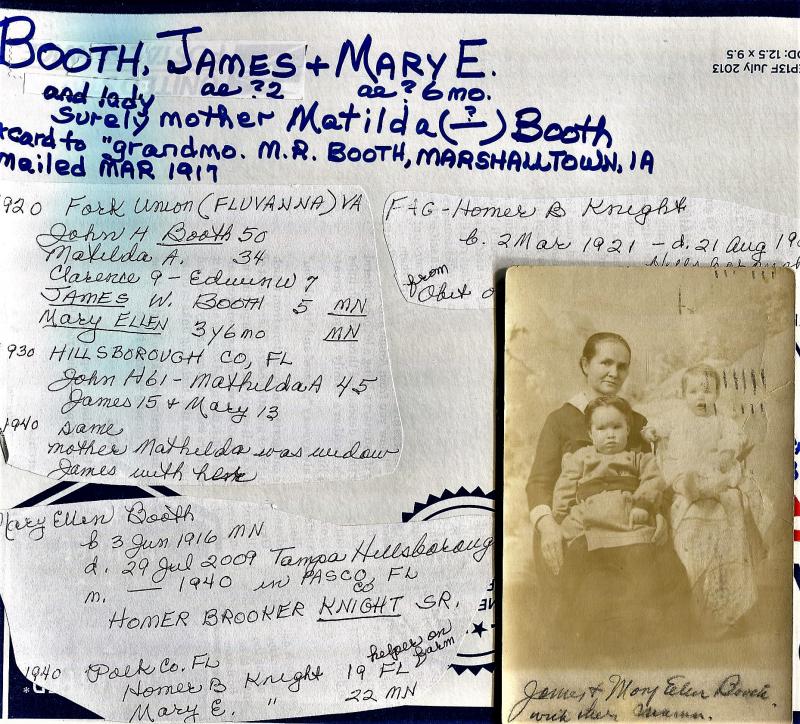 EP13F July 2013
OD: 12.5 x 9.5
BOOTH, JAMES + MARY E.
and lady ae ?2 ae ? 6 mo.
Surely mother Matilda (?) Booth
card to "grandmo. M.R. BOOTH, MARSHALLTOWN, IA
mailed MAR 1917
1920 Fork Union (FLUVANNA) VA
John H Booth 50
Matilda A. 34
Clarence 9 - Edwin W 7
JAMES W. BOOTH 5 MN
MARY ELLEN 3 y 6 mo MN
1930 HILLSBOROUGH CO, FL
John H 61 - Mathilda A 45
James 15 + Mary 13
1940 same
mother Mathilda was widow
James with her
FAG - Homer B Knight
b. 2 Mar 1921 - d. 21 Aug
from
Obit
Mary Ellen Booth
b 3 Jun 1916 MN
d. 29 Jul 2009 Tampa Hillsboroug
m. — 1940 in PASCO CO, FL
HOMER BROOKER KNIGHT SR.
1940 Polk Co. FL
Homer B Knight 19 FL helper on farm
Mary E. " 22 MN
James & Mary Ellen Booth
with their Mama.